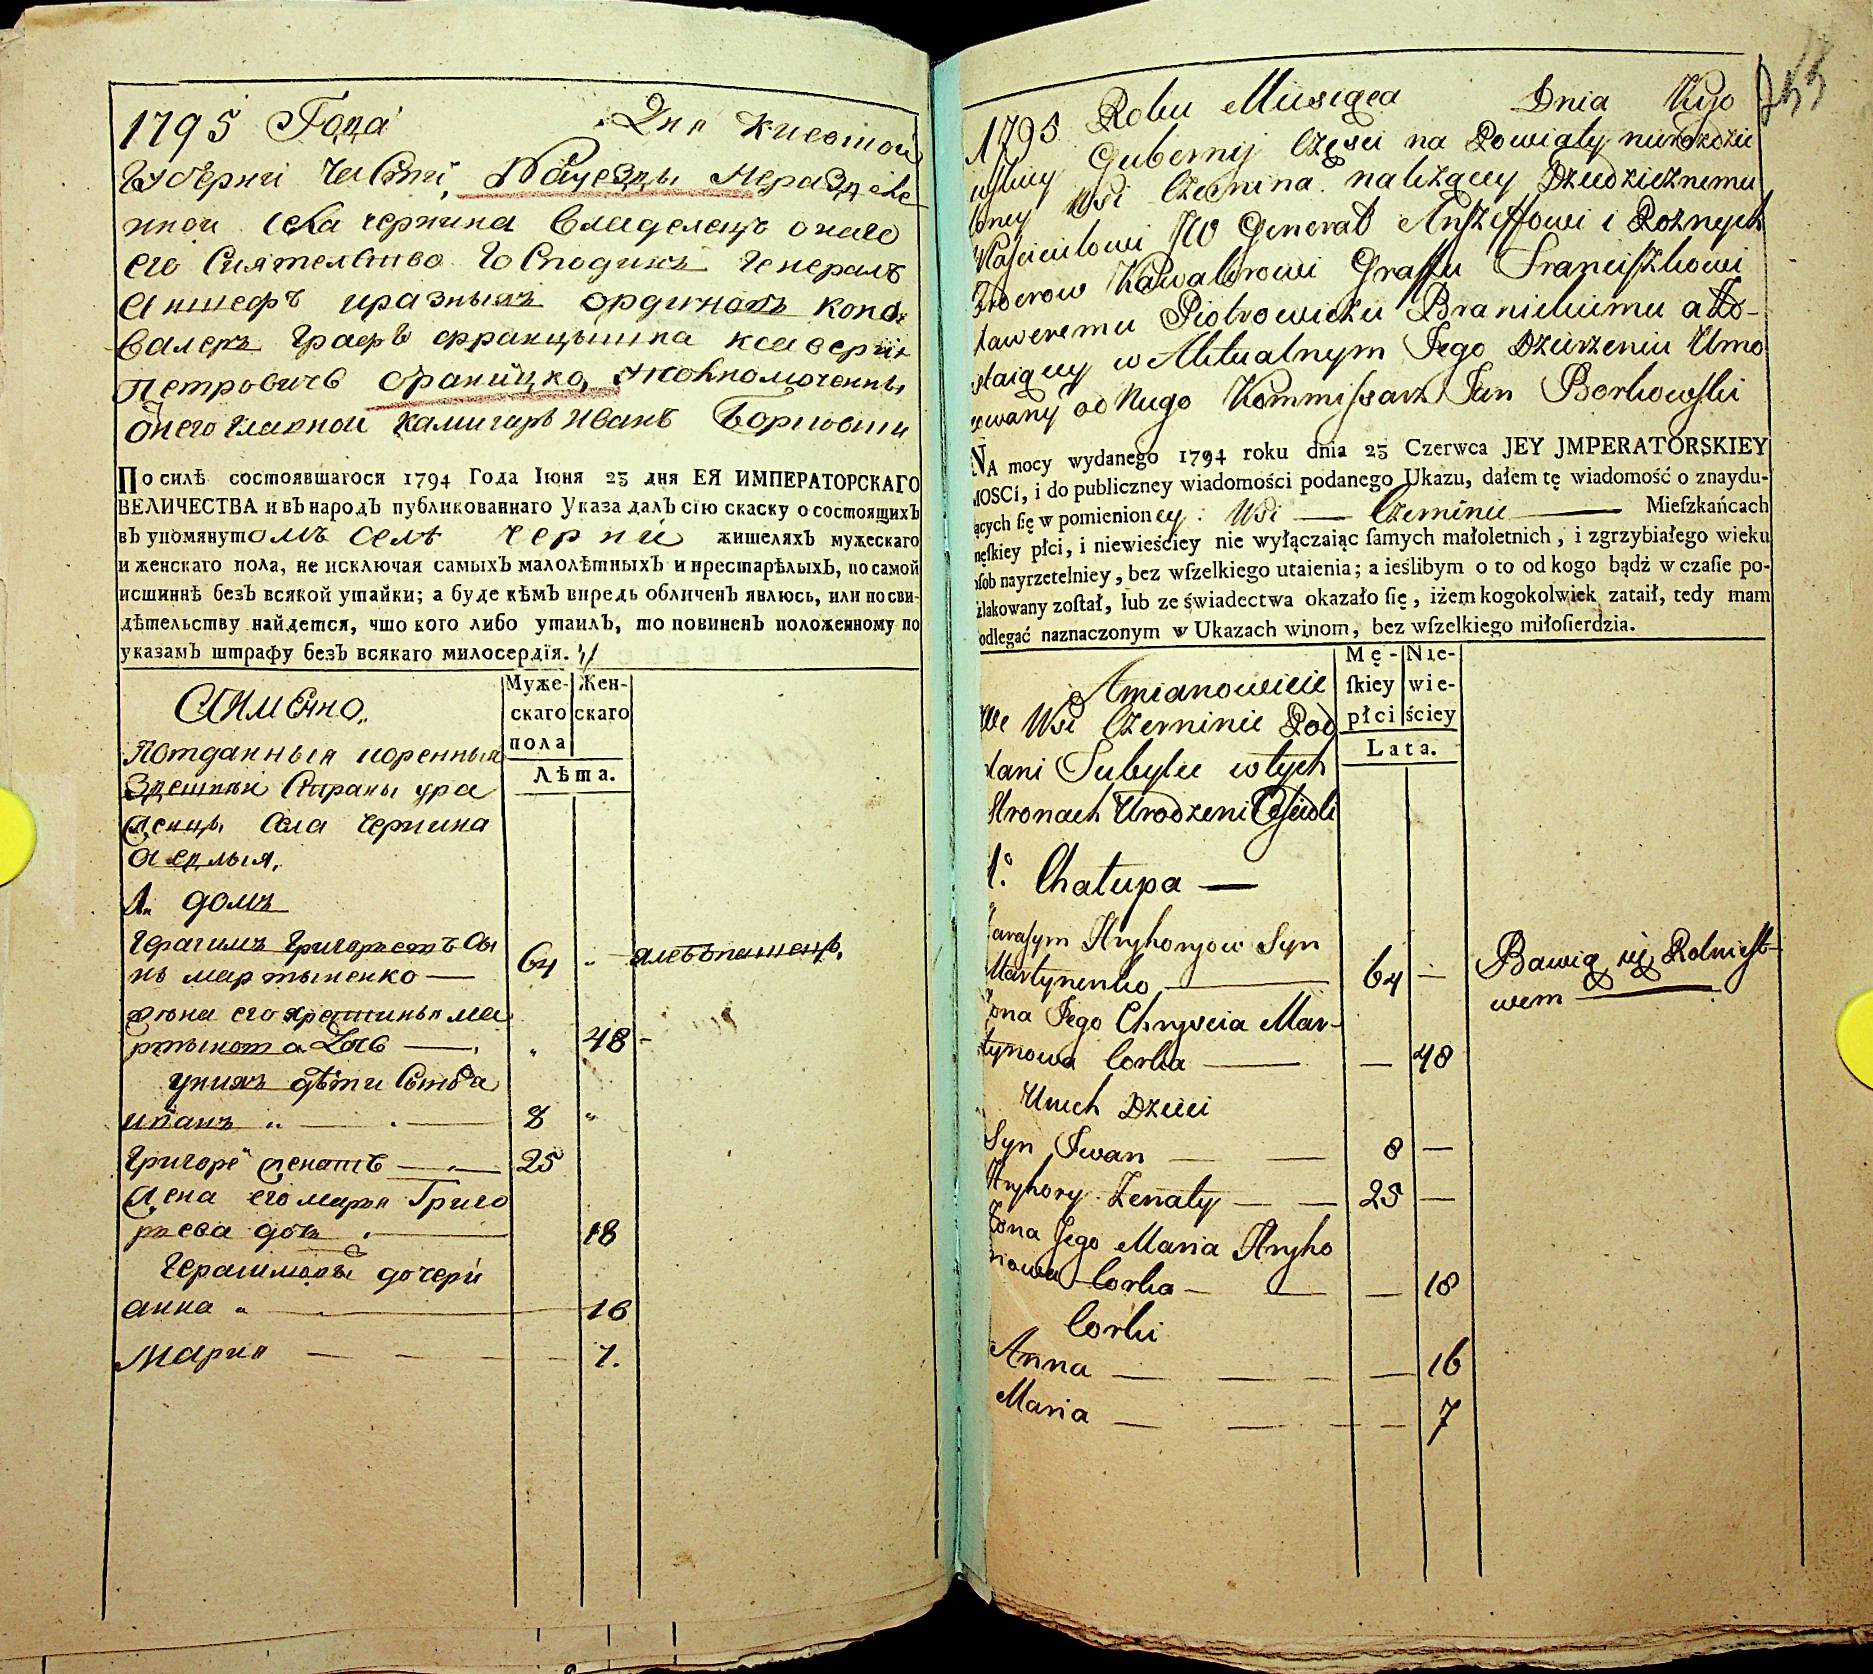 1795 Года Дня Киевской
Губерніи Части, По уезды неразделе
нной села чернина владелецъ онаго
его Сиятелство Господинъ Генералъ
Аншефъ и разныхъ ординовъ кова
валеръ Графъ Францышка ксаверiй
Петровичъ браницко, уполномоченны
Онего главной камисаръ Иванъ Борковски
По силѣ состоявшагося 1794 Года Іюня 23 дня ЕЯ ИМПЕРАТОРСКАГО
ВЕЛИЧЕСТВА и въ народъ публикованнаго Указа далъ сію скаску о состоящихъ
въ упомянутомъ селѣ черни жителяхъ мужескаго
и женскаго пола, не исключая самыхъ малолѣтныхъ и престарѣлыхъ, по самой
истиннѣ безъ всякой утайки; а буде кѣмъ впредь обличенъ явлюсь, или по сви-
дѣтельству найдется, что кого либо утаилъ, то повиненъ положенному по
указамъ штрафу безъ всякаго милосердїя.
Муже-
скаго
пола
Жен-
скаго
Лѣта.
Аимѣнно
Потданныя коренныя
Здешнѣи Страны ура
женцы Села чернина
1. домъ
Герасимъ Григорьевъ Сы
нъ мартыненко — 64 "
жона его християнья ма
ртынова Дочь — " 48 -
у нихъ дѣти Сынъ
иванъ — 8 "
Григорей женатъ — 25
жена его марья Григо
рьева дочь — 18
Герасимовы дочери
анна — 16
Мария — — — 7.
255
1795 Roku Miesiąca Dnia Kijo
wskiey Gubernij Części na Powiaty nierozdzie
loney Wsi Czernina należącey Dziedzicznemu
Właścicielowi JW Generał Anszeffowi i Roznych
Orderow Kawalerowi Graffu Franciszkowi
Xaweremu Piotrowiczu Branickiemu a Zo-
staiącey w Aktualnym Jego Dzierżeniu Umo
cowany od Niego Kommissarz Jan Borkowski
NA mocy wydanego 1794 roku dnia 23 Czerwca JEY JMPERATORSKIEY
MOSCI, i do publiczney wiadomości podanego Ukazu, dałem tę wiadomość o znaydu-
ących ſię w pomienioney: Wsi — Czerninie — Mieſzkańcach
męſkiey płci, i niewieściey nie wyłączaiąc ſamych małoletnich, i zgrzybiałego wieku
oſob nayrzetelniey, bez wſzelkiego utaienia; a ieślibym o to od kogo bądź w czaſie po-
ſzlakowany zoſtał, lub ze świadectwa okazało ſię, iżem kogokolwiek zataił, tedy mam
podlegać naznaczonym w Ukazach winom, bez wſzelkiego miłoſierdzia.
Mę-
ſkiey
płci
Nie-
wie-
ściey
Lata.
Amianowicie
We Wsi Czerninie Pod
dani Tubylcy w tych
Stronach Urodzeni Osiedli
1º Chałupa —
Harasym Hryhoryow Syn
Martynenko — 64 —
Żona Jego Chryscia Mar-
tynowa Corka — — 48
U nich Dzieci
Syn Iwan — — 8 —
Hryhory Żenaty — — 25 —
Żona Jego Maria Hryho
riowa Corka — — — 18
Corki
Anna — — — — 16
Maria — — — — 7
Bawią się Rolnict-
wem —